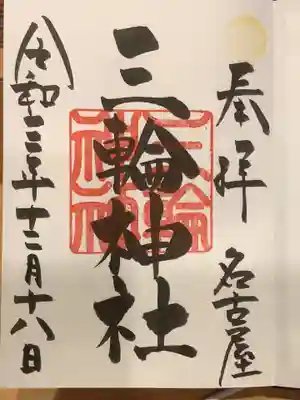 奉拝
名古屋
三輪神社
令和三年十二月十八日